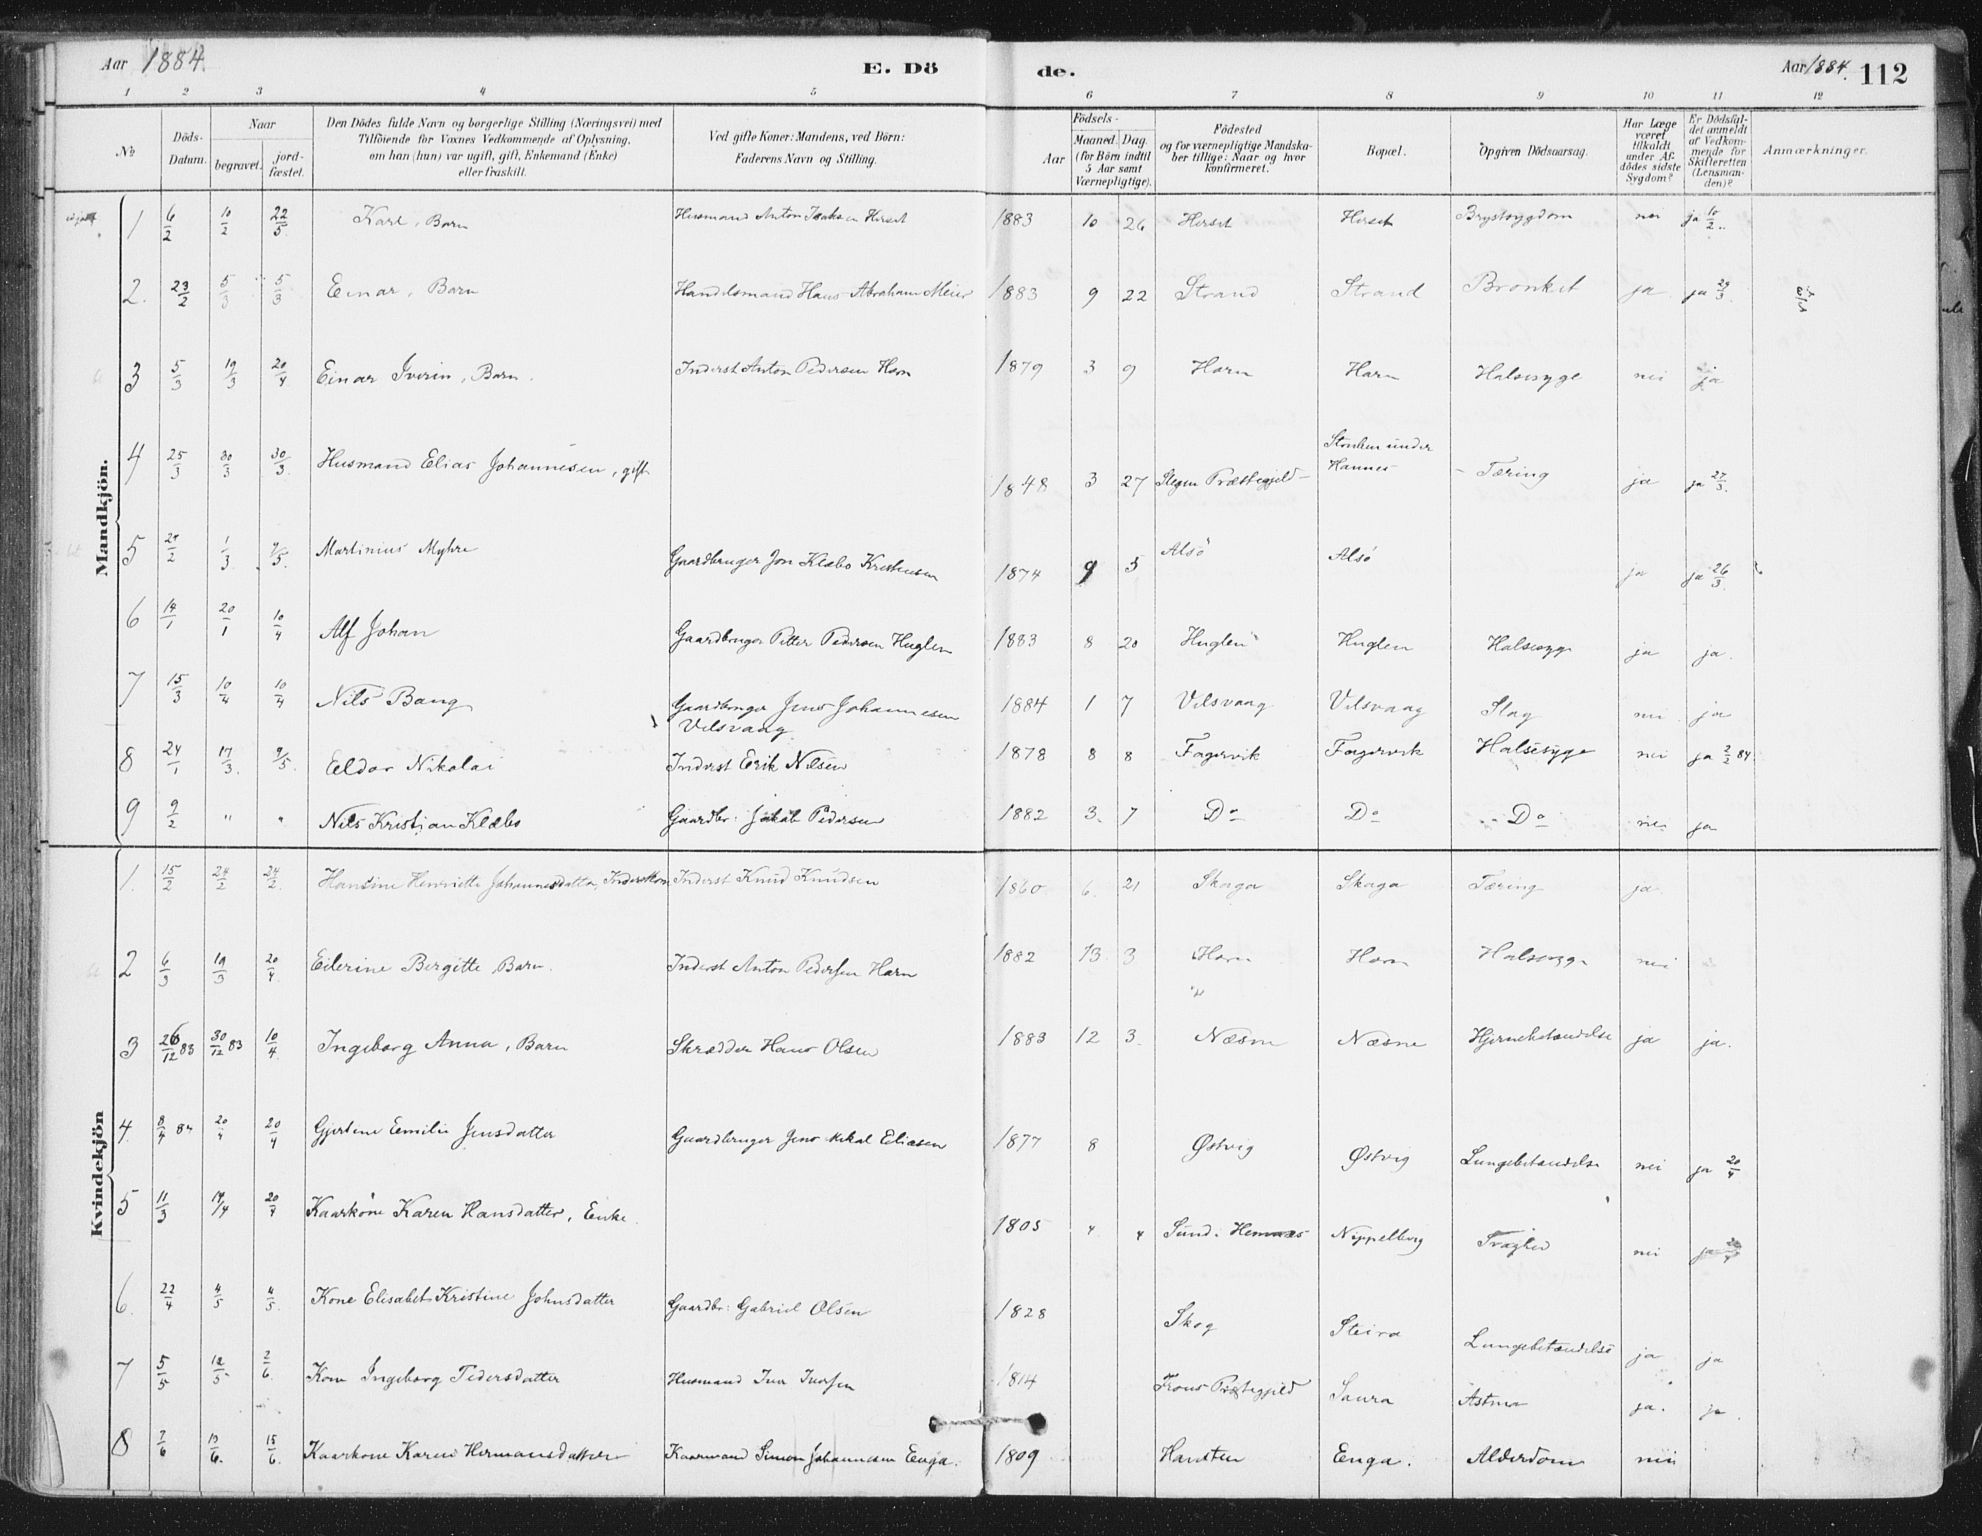 Aar 1884. E. Dö de. Aar 1884. 112
1 2 3 4 5 6 7 8 9 10 11 12
№ Döds-Datum. Naar begravet. jord-fæstet. Den Dödes fulde Navn og borgerlige Stilling (Næringsvei) med Tilföiende for Voxnes Vedkommende af Oplysning, om han (hun) var ugift, gift, Enkemand (Enke) eller fraskilt. Ved gifte Koner: Mandens, ved Börn: Faderens Navn og Stilling. Födsels- Aar Maaned. Dag. (for Börn indtil 5 Aar samt Værnepligtige). Födested og for værnepligtige Mandskaber tillige: Naar og hvor konfirmeret. Bopæl. Opgiven Dödsaarsag. Har Læge været tilkaldt under Afdödes sidste Sygdom? Er Dödsfaldet anmeldt af Vedkommende for Skifteretten (Lensmanden)? Anmærkninger.
Mandkjön.
1 6/2 10/2 22/5. Karl, Barn Husmand Anton Isaksen Hirset 1883 10 26 Hirset Hirset Brystsygdom nei ja 10/2.
2. 23/2 5/3 5/3 Einar, Barn Handelsmand Hans Abraham Meier 1883 9 22 Strand Strand Bronkit ja ja 29/3.
3 5/3 19/3 20/4 Einar Iverin, Barn. Inderst Anton Pedersen Horn 1879 3 9 Horn Horn Halssyge nei ja
4 25/3 30/3 30/3. Husmand Elias Johannesen, gift 1848 3 27 Stegen Præstegjeld under Hannes Tæring ja ja 27/3.
5 1/3. 9/5. Martinius Myhre Gaardbruger Jon Klæbo Kristensen 1874 9 5 Alsö Alsö ja ja 26/3.
6 14/1 20/1 10/4 Alf Johan Gaardbruger Petter Pedersen Huglen 1883 8 20 Huglen Huglen Halssyge ja ja.
7 15/3 10/4 10/4 Nils Bang Gaardbruger Jens Johannesen Vilsvaag. 1884 1 7 Vilsvaag Vilsvaag Slag nei ja
8 24/1 17/3. 9/5. Eldor Nikolai Inderst Erik Nilsen 1878 8 8 Fagervik Fagervik Halssyge nei ja 2/2 84.
9 9/2 " " Nils Kristian Klæbo Gaardbr: Jakob Pedersen 1882 3. 7 Do Do Do nei ja
Kvindekjön
1. 15/2 24/2 24/2. Hansine Henriette Johannesdatter, Inderstkone Inderst Knud Knudsen 1860 6. 21 Skaga Skaga Tæring ja.
2 6/3 19/3 20/4 Eilerine Bergitte, Barn. Inderst Anton Pedersen Horn 1882 13. 3 Horn Horn Halssyge nei
3 26/12 83 30/12 83 10/4. Ingeborg Anna, Barn Skrædder Hans Olsen 1883 12 3. Næsne Næsne Hjernebetændelse ja ja.
4. 8/4 84 20/4 20/4 Gjertine Emilie Jensdatter Gaardbruger Jens Mikal Eliasen 1877 8 Østvig Østvig Lungebetændelse nei ja 20/4
5 11/3 19/4 20/4 Kaarkone Karen Hansdatter, Enke. 1805 " " Sund i Hemnæs Nippelberg nei ja
6. 22/4 4/5 4/5. Kone Elisabet Kristine Johnsdatter Gaardbr: Gabriel Olsen 1828 Skog Steira Lungebetændelse ja ja
7 5/5 12/5. 2/6. Kone Ingeborg Pedersdatter Husmand Ivar Iversen 1814 Præstegjeld Saura Astma ja. ja.
8 2/6 13/6. 15/6. Kaarkone Karen Hermansdatter Kaarmand Simon Johannesen Enga. 1809 Enga. Alderdom nei